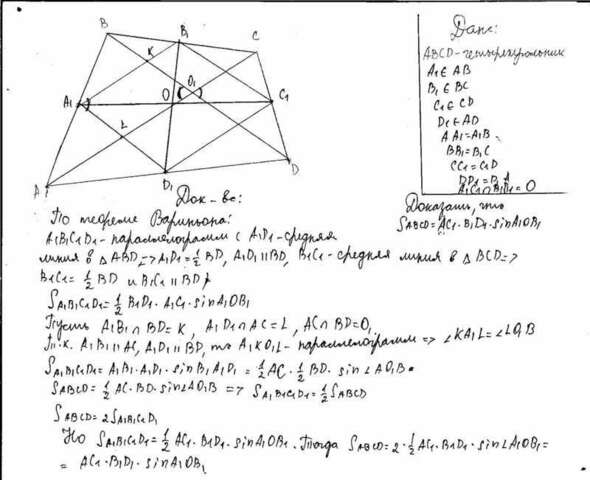 B
B1
C
K
O1
A1
O
C1
L
A
D1
D
Дано:
ABCD-четырехугольник
A1 ∈ AB
B1 ∈ BC
C1 ∈ CD
D1 ∈ AD
AA1=A1B
BB1=B1C
CC1=C1D
DD1=D1A
A1C1∩B1D1=O
Доказать, что
SABCD=A1C1·B1D1·sinA1OB1
Док-во:
По теореме Вариньона:
A1B1C1D1-параллелограмм с A1D1-средняя
линия в △ABD => A1D1=½BD, A1D1||BD, B1C1-средняя линия в △BCD=>
B1C1=½BD и B1C1||BD
SA1B1C1D1=½B1D1·A1C1·sinA1OB1
Пусть A1B1∩BD=K, A1D1∩AC=L, AC∩BD=O1
т.к. A1B1||AC, A1D1||BD, то A1KO1L-параллелограмм => ∠KA1L=∠LO1B
SA1B1C1D1=A1B1·A1D1·sinB1A1D1=½AC·½BD·sin∠AO1B
SABCD=½AC·BD·sin∠AO1B => SA1B1C1D1=½SABCD
SABCD=2SA1B1C1D1
Но SA1B1C1D1=½A1C1·B1D1·sinA1OB1. Тогда SABCD=2·½A1C1·B1D1·sin∠A1OB1=
=A1C1·B1D1·sinA1OB1